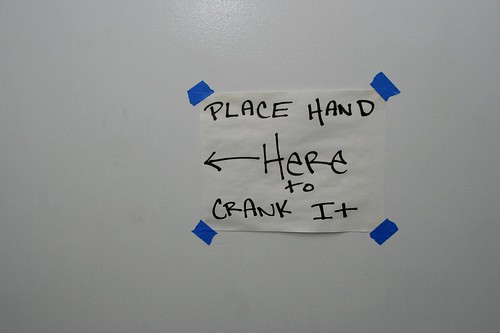 PLACE HAND
← HERE
to
CRANK It